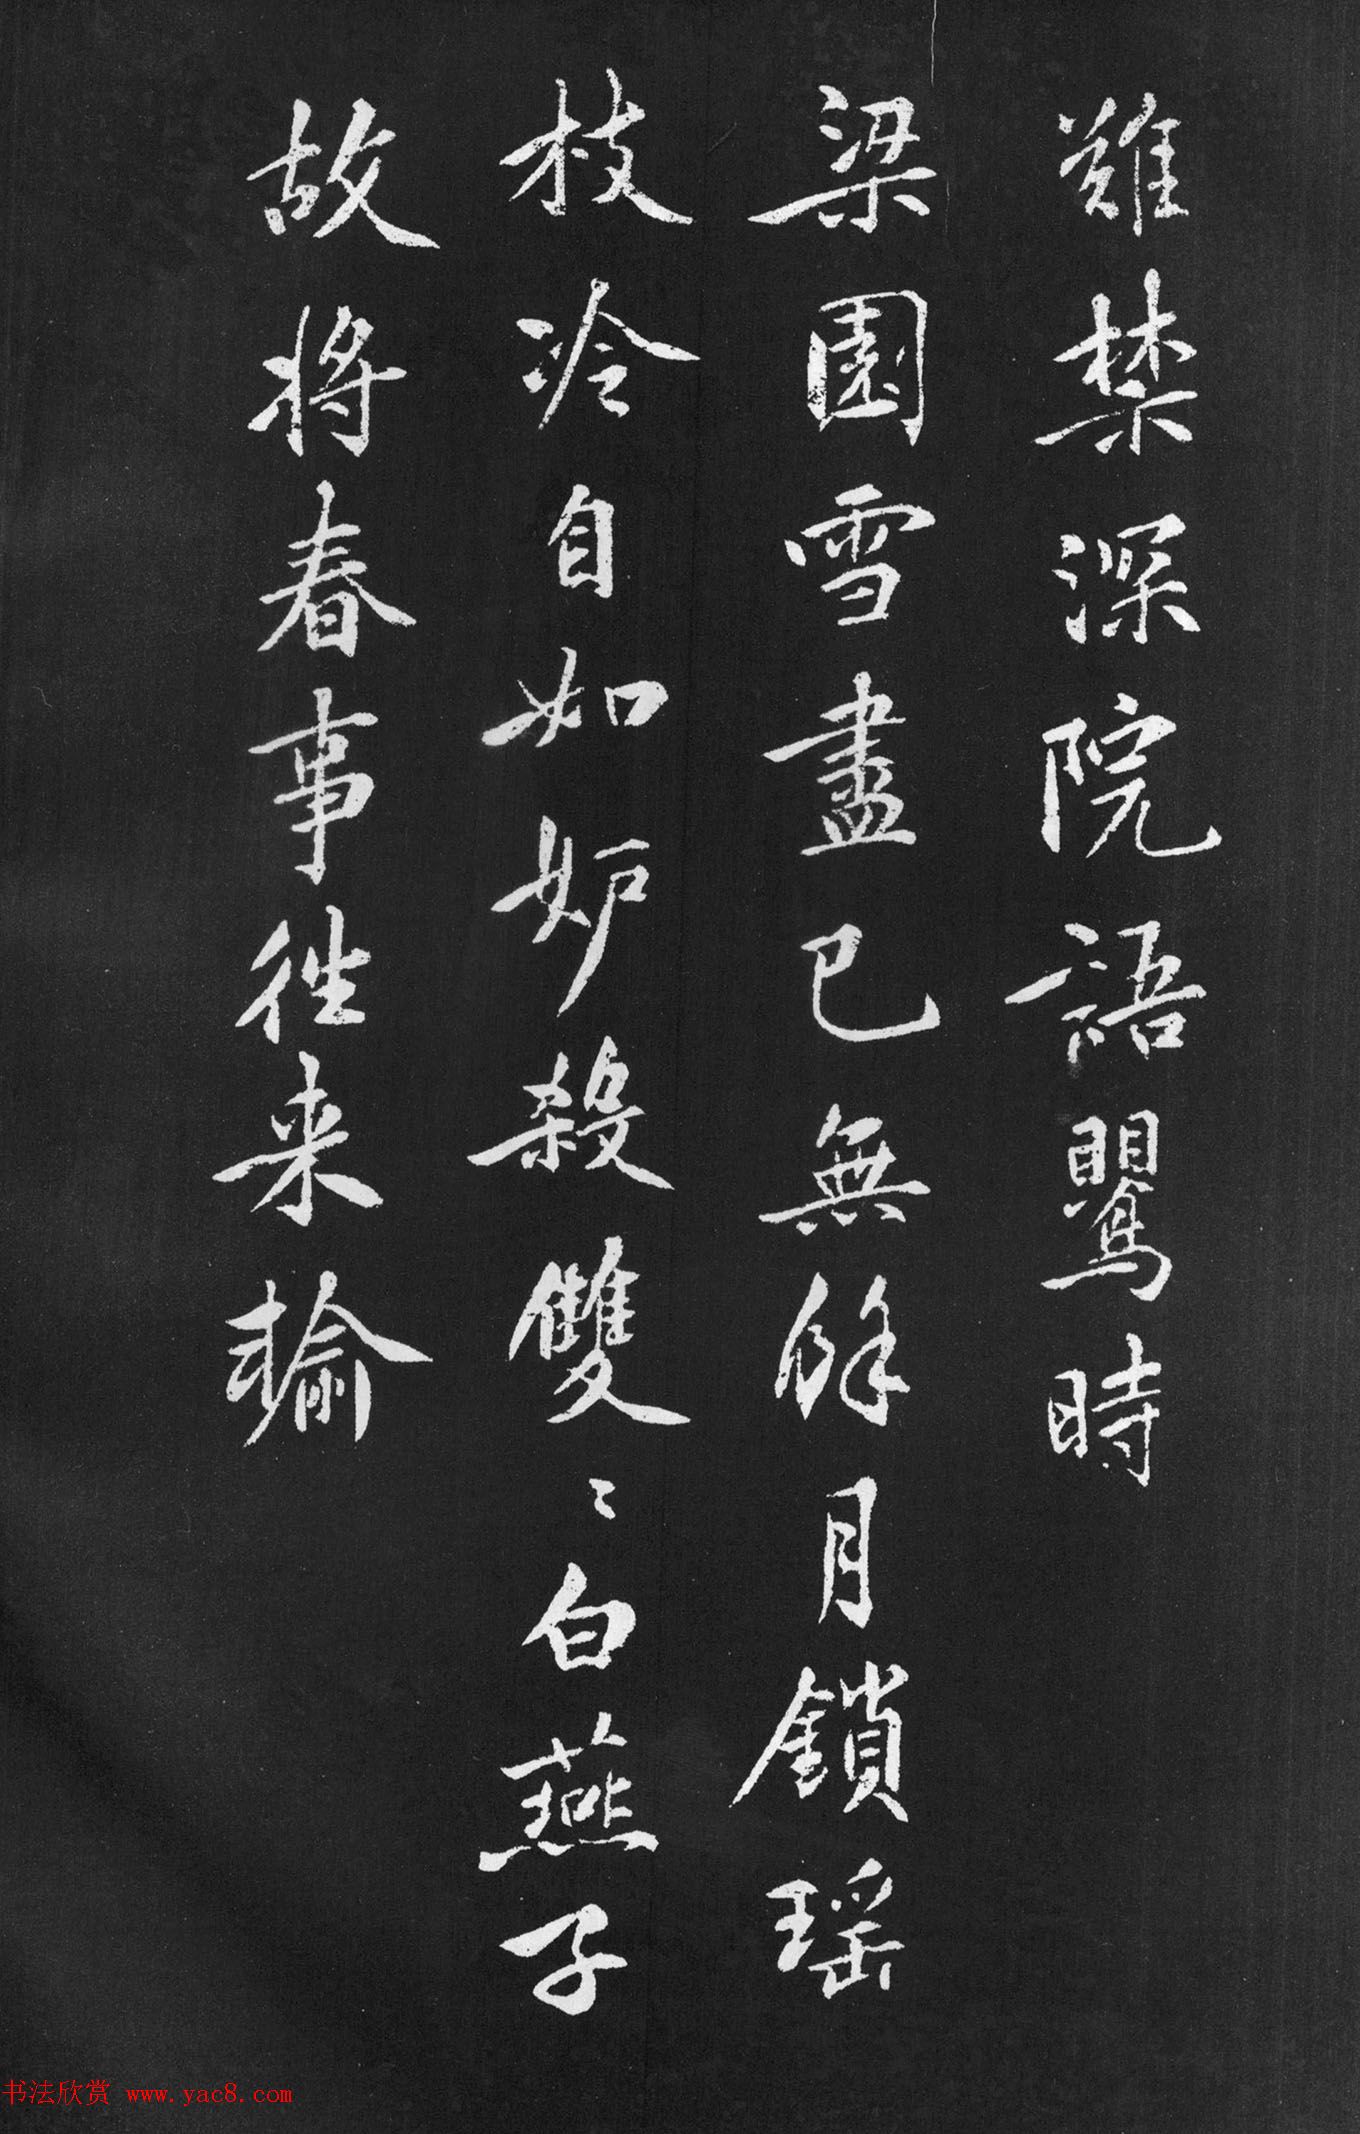 難禁深院語鸎時
梁園雪盡已無餘月鎖瑶
枝冷自如妒殺雙〻白燕子
故將春事往来輸
书法欣赏 www.yac8.com